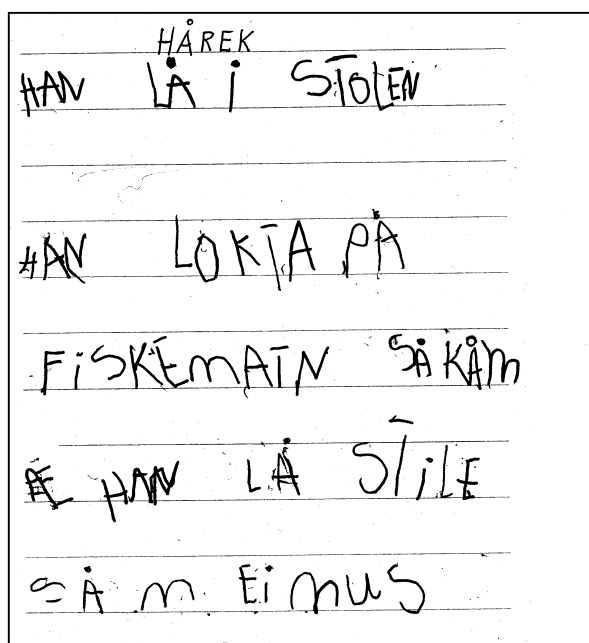 HÅREK
HAN LÅ I STOLEN
HAN LOKTA PÅ
FiSKEMATN SÅ KÅM
Æ HAN LÅ STiLE
SÅM Ei MUS